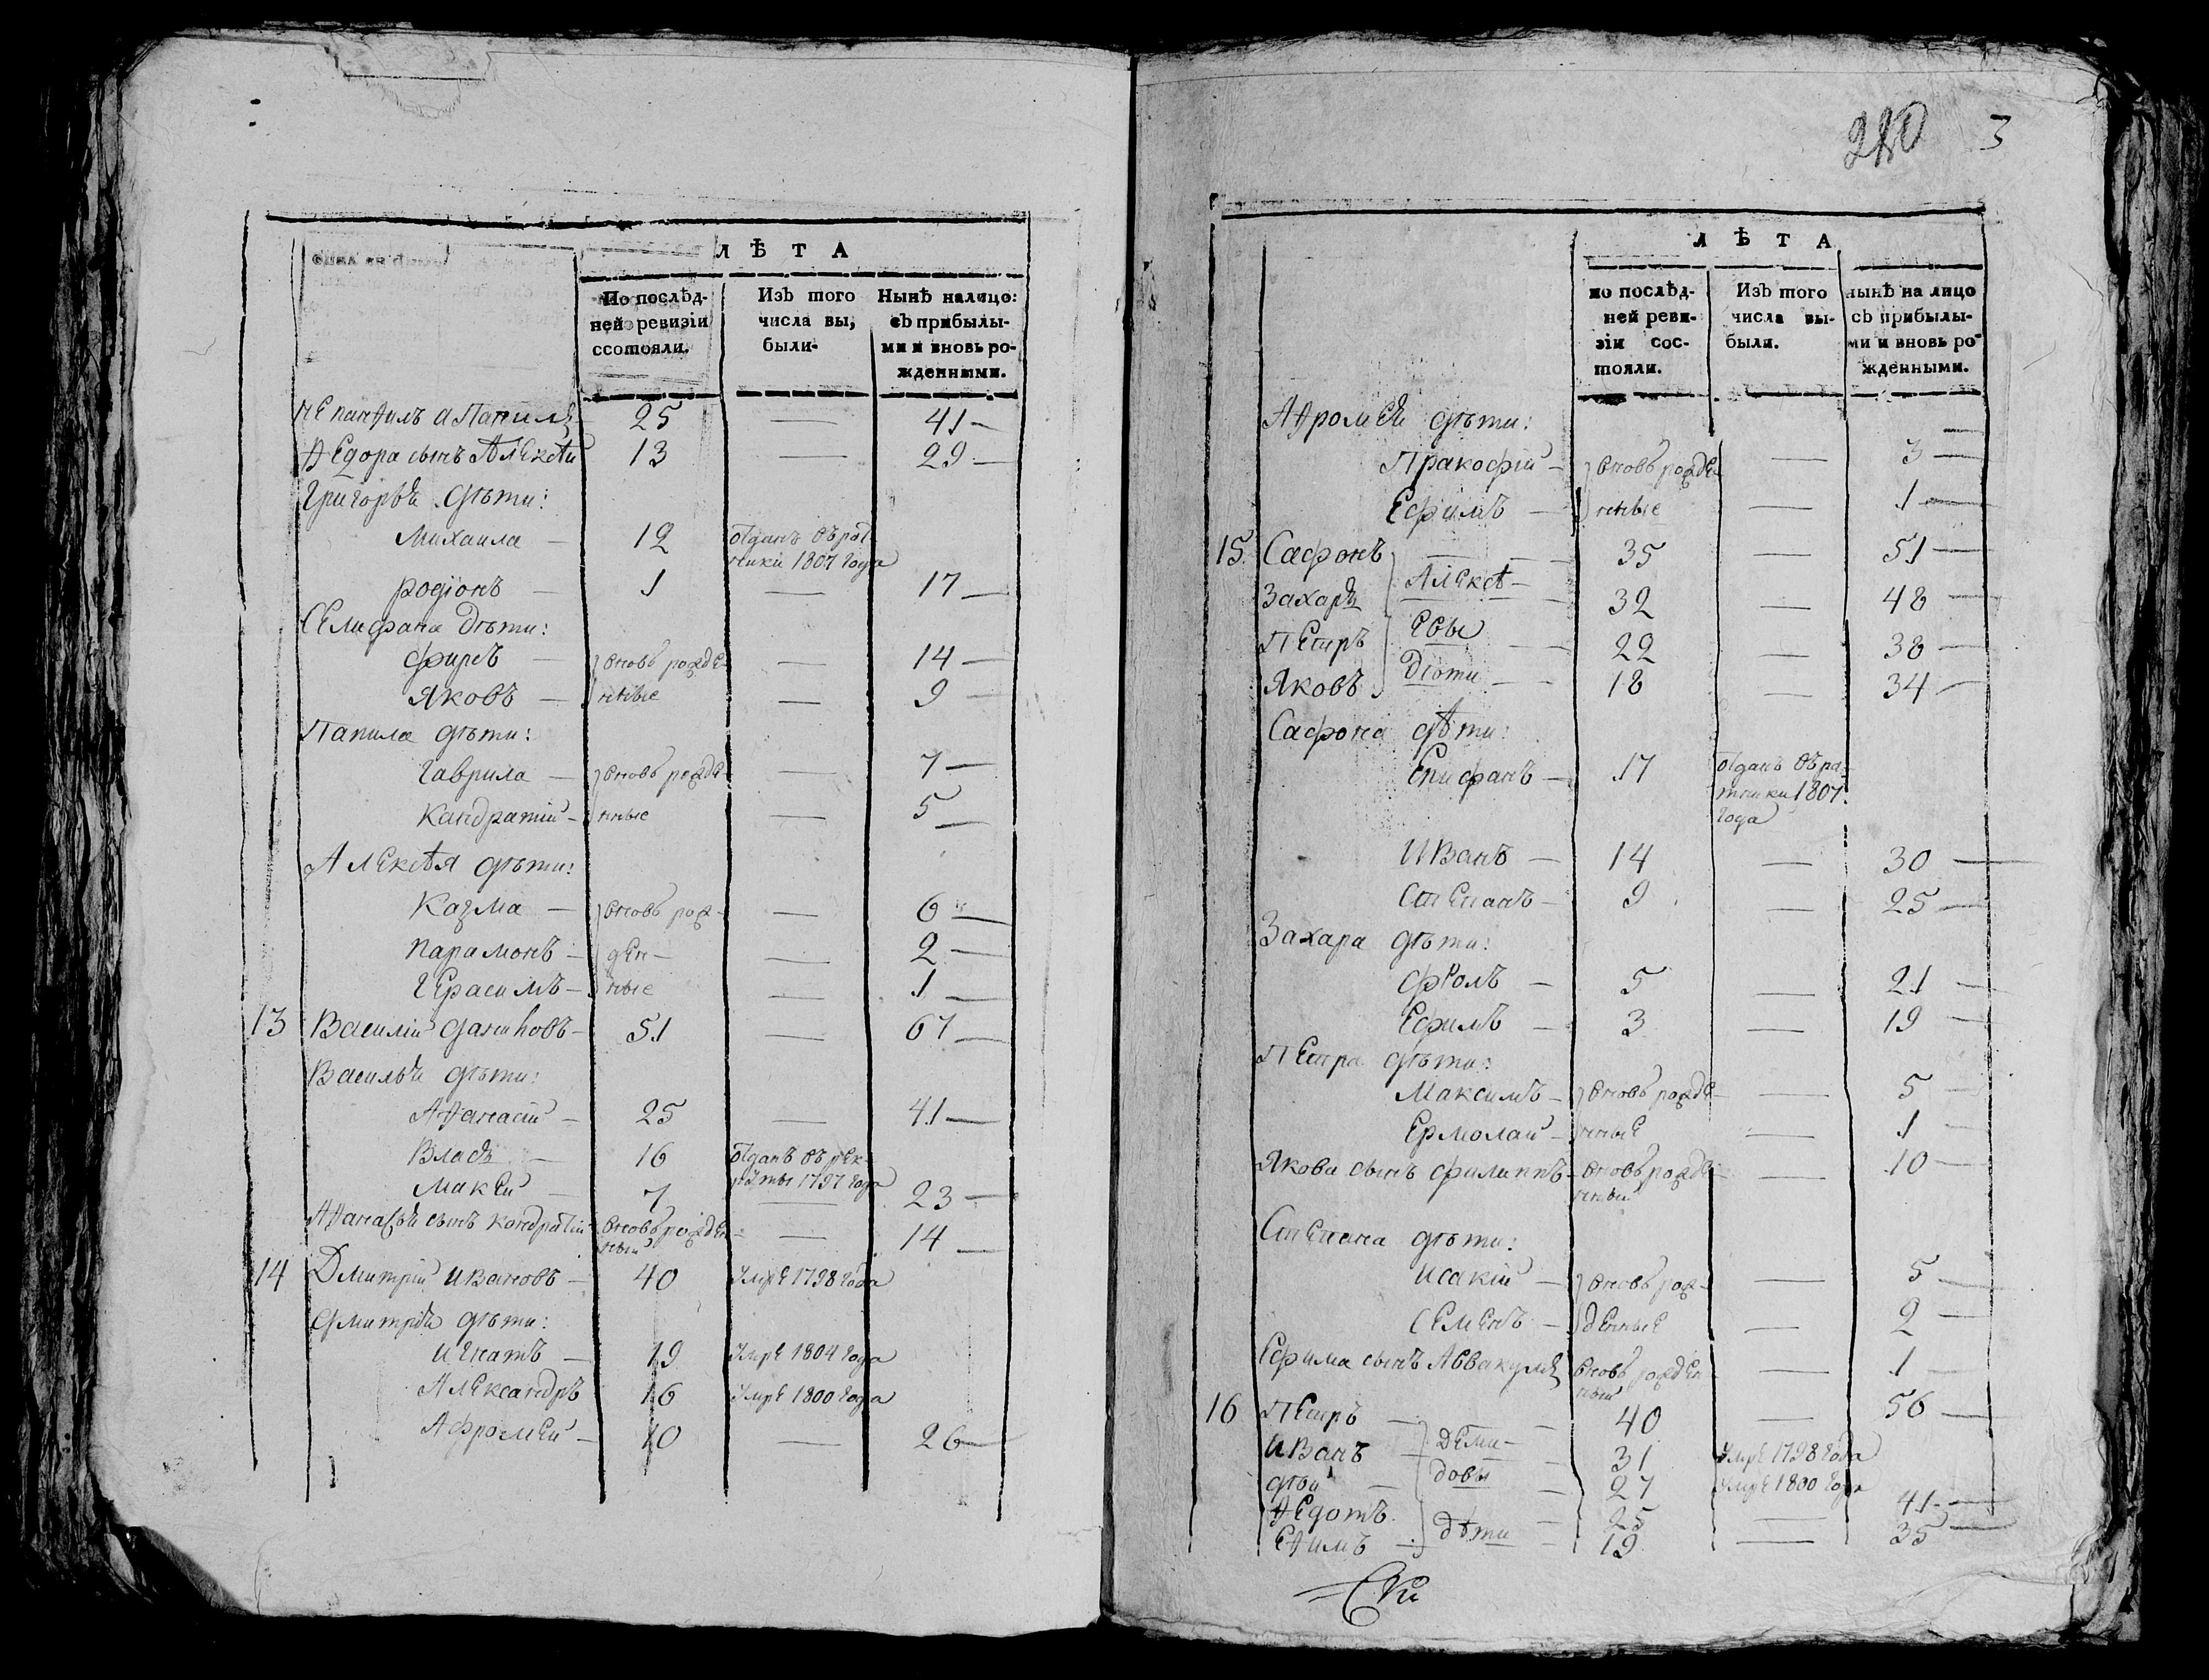 ЛѢТА
По послѣд-
ней ревизіи
ссотояли.
Изъ того
числа вы,
были-
Нынѣ налицо:
съ прибылы-
ми и вновь ро-
жденными.
25 — 41 —
Ѳедора сынъ Алексѣй 13 — 29 —
Григорьѣ дѣти:
Михаила — 12 отданъ въ рат-
ники 1807 года
родіонъ — 1 — 17 —
Селифана дѣти:
фирсъ — вновь рожде- — 14 —
Яковъ — нные — 9 —
Панила дѣти:
гаврила — вновь рожде- — 7 —
Кандратій — нные — 5 —
Алексѣя дѣти:
Казма — вновь рож- — 6 —
парамонъ — ден- — 2 —
герасимъ — ные — 1 —
13 Василій даниловъ — 51 — 67 —
Васильѣ дѣти:
Аѳанасій — 25 — 41 —
Владъ — 16 отданъ въ рек-
руты 1797 года
Макей — 7 — 23 —
Аѳанасьѣ сынъ Кондратій вновь рожден- — 14 —
ный
14 Дмитрій Ивановъ — 40 умре 1798 года
дмитріѣ дѣти:
игнатъ — 19 умре 1804 года
Александръ 16 умре 1800 года
Афромей — 10 — 26 —
240 3
ЛѢТА
по послѣд-
ней реви-
зіи сос-
тояли.
Изъ того
числа вы-
были.
нынѣ на лицо
съ прибылы-
ми и вновь ро-
жденными.
Аѳромей дѣти:
Пракофій — вновь рожде — 3 —
Ефимъ — нные — 1 —
15 Сафонъ — — 35 — 51 —
Захаръ Алексѣ — 32 — 48 —
Петръ евы — 22 — 38 —
Яковъ дѣти — 18 — 34 —
Сафона дѣти:
Епифанъ — 17 отданъ въ ра-
тники 1807
года
Иванъ — 14 — 30 —
Степанъ — 9 — 25 —
Захара дѣти:
фролъ — 5 — 21 —
Ефимъ — 3 — 19 —
Петра дѣти:
Максимъ — вновь рожде- — 5 —
Ермолай — нные — 1 —
Якова сынъ филиппъ — вновь рожде- — 10 —
нный
Степана дѣти:
Исакій — вновь рож- — 5 —
Семенъ — денные — 2 —
Ефима сынъ Аввакумъ вновь рожден- — 1 —
ный
16 Петръ — — 40 — 56 —
Иванъ — Деми — 31 умре 1798 года
довы — 27 умре 1800 года
Ѳедотъ — 25 — 41 —
Еѳимъ — дѣти — 19 — 35 —